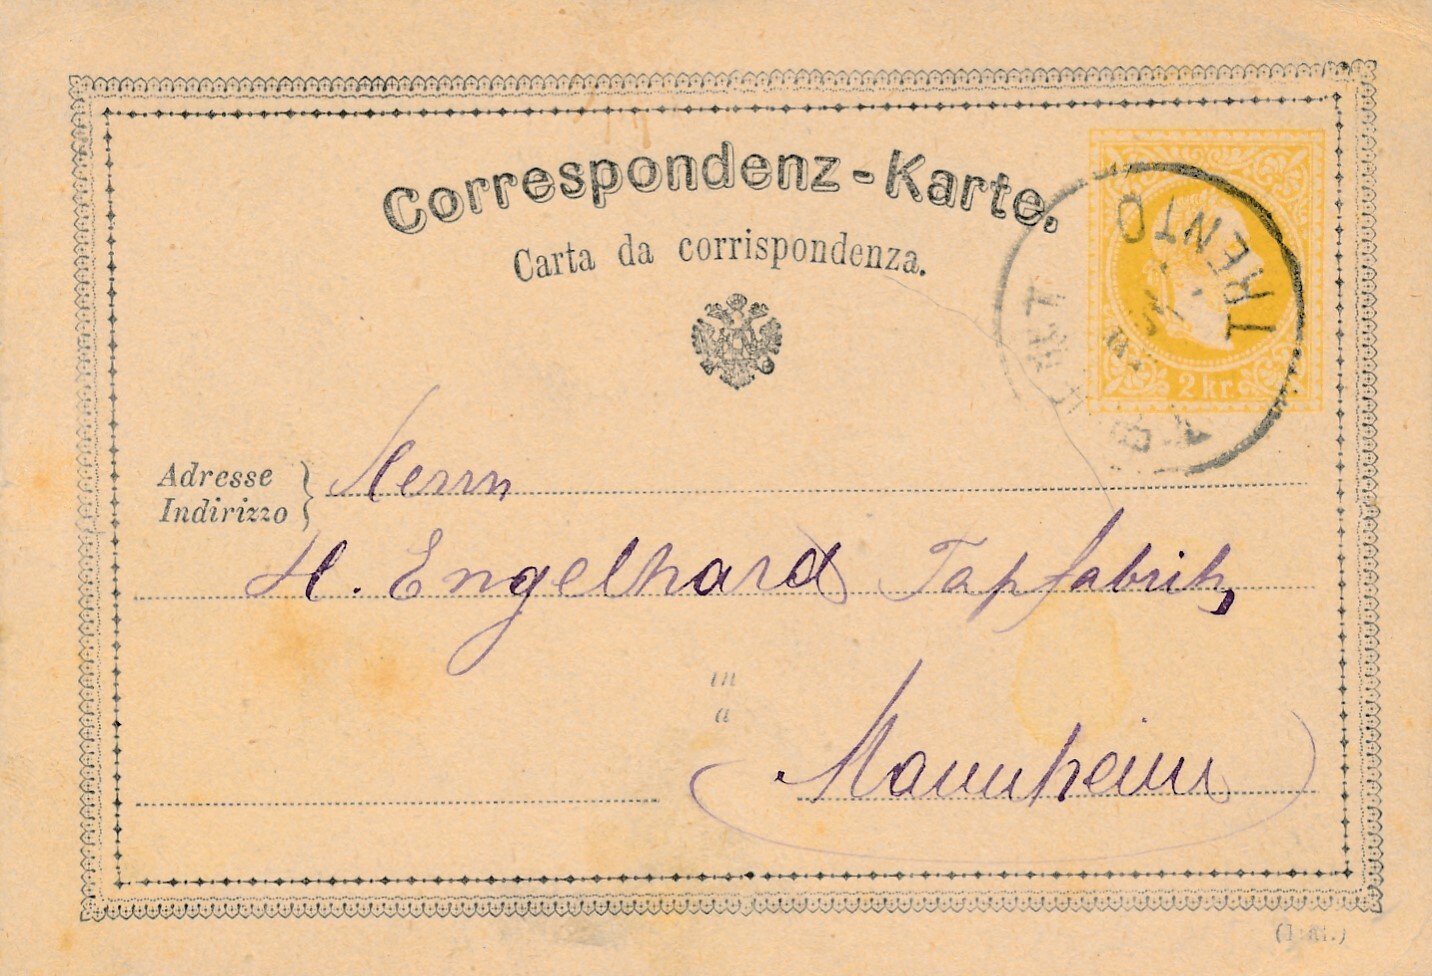 Correspondenz-Karte.
Carta da corrispondenza.
TRENTO
TRIENT
2 kr.
Adresse
Indirizzo
Herrn
H. Engelhard Tapfabrik
in
a
Mannheim
(Ital.)